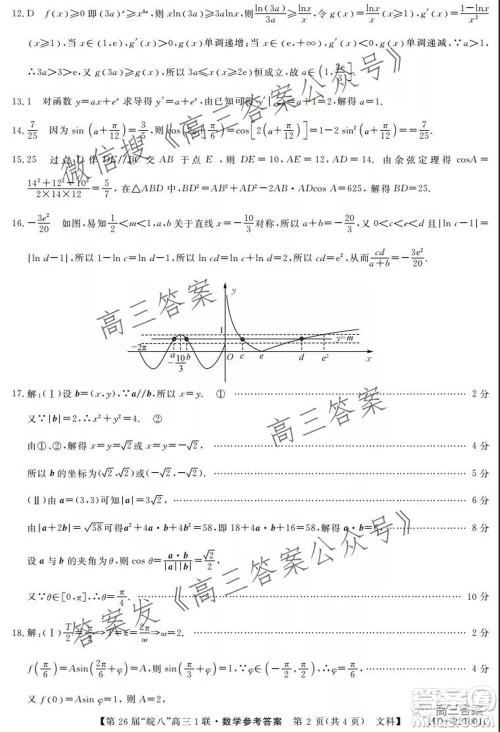 12. D f(x)≥0 即 (3a)ˣ≥x³ᵃ, 则 xln(3a)≥3alnx, 则 ln(3a)/3a ≥ lnx/x, 令 g(x)=lnx/x, 则 g′(x)=(1-lnx)/x²
(x>1), 当 x∈(1,e), g′(x)>0, g(x) 单调递增; 当 x∈(e,+∞), g′(x)<0, g(x) 单调递减, ∵a>1,
∴3a>3>e, 又 g(3a)≥g(x), 所以 3a≤x(x≥2e) 恒成立, 故 a∈(1, 2e/3].
13. 1 对函数 y=ax+eˣ 求导得 y′=a+eˣ, 由已知可得 =2, 解得 a=1.
14. 7/25 因为 sin(a+π/12)=3/5, 则 cos(2a+π/6)=cos[2(a+π/12)]=1-2sin²(a+π/12)=7/25.
15. 25 过点 作 DE∥ 交 AB 于点 E, 则 DE=10, AE=12, AD=14. 由余弦定理得 cosA=
(14²+12²-10²)/(2×14×12)=5/7, 在△ABD 中, BD²=AB²+AD²-2AB·ADcos A=625, 解得 BD=25.
16. -3e²/20 如图, 易知 1/2<m<1, a,b 关于直线 x=-10/3 对称, 所以 a+b=-20/3, 又 0<c<e<d 且 |ln c-1|=
|ln d-1|, 所以 1-ln c=ln d-1, 所以 ln c+ln d=2, 所以 cd=e², 从而 cd/(a+b)=-3e²/20.
y
1
y=m
-2π a b O c e d e² x
-10/3
17. 解: (Ⅰ) 设 b=(x,y), ∵a∥b, 所以 x=y. ① 2 分
又∵|b|=2, ∴x²+y²=4. ②
由①、②, 解得 x=y=√2 或 x=y=-√2. 4 分
所以 b 的坐标为 (√2,√2) 或 (-√2,-√2). 5 分
(Ⅱ) 由 a=(3,3) 可知 |a|=3√2, 6 分
由 |a+2b|=√58 可得 a²+4a·b+4b²=58, 即 18+4a·b+16=58, 解得 a·b=6. 8 分
设 a 与 b 的夹角为 θ, 则 cos θ=a·b/|a||b|=√2/2,
又∵θ∈[0,π], ∴θ=π/4. 10 分
18. 解: (Ⅰ) T/2=π/2 ω=2. 2 分
f(π/6)=Asin(2π/6+φ)=A, 则 sin(π/3+φ)=1, φ∈(-π/2, π/2), φ=π/6. 4 分
又 f(0)=Asin φ=1, A=2.
【第 26 届“皖八”高三 1 联·数学参考答案 第 2 页(共 4 页) 文科】
微信搜《高三答案公众号》
高三答案
高三答案
答案发《高三答案公众号》
高三答案